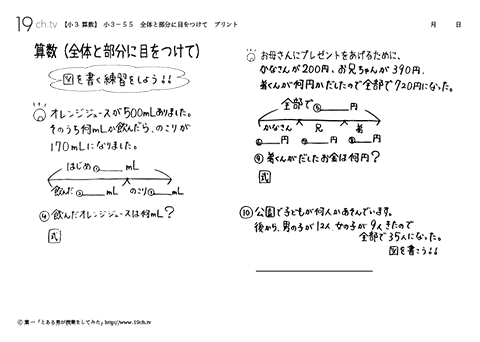 19 ch.tv 【小3 算数】 小3-55 全体と部分に目をつけて プリント 月 日
算数(全体と部分に目をつけて)
図を書く練習をしよう!!
オレンジジュースが500mLありました。
そのうち何mLか飲んだら、のこりが
170mLになりました。
はじめ①____mL
飲んだ②____mL のこり③____mL
④飲んだオレンジジュースは何mL?
式
お母さんにプレゼントをあげるために、
かなさんが200円、お兄ちゃんが390円、
弟くんが何円かだしたので全部で720円になった。
全部で⑤____円
かなさん 兄 弟
⑥____円 ⑦____円 ⑧____円
⑨弟くんがだしたお金は何円?
式
⑩公園で子どもが何人かあそんでいます。
後から、男の子が12人、女の子が9人きたので
全部で35人になった。
図を書こう!!
© 葉一「とある男が授業をしてみた」http://www.19ch.tv